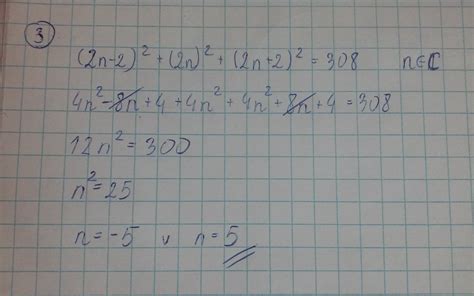 3
(2n-2)² + (2n)² + (2n+2)² = 308 n∈C
4n² - 8n + 4 + 4n² + 4n² + 8n + 4 = 308
12n² = 300
n² = 25
n = -5 v n = 5